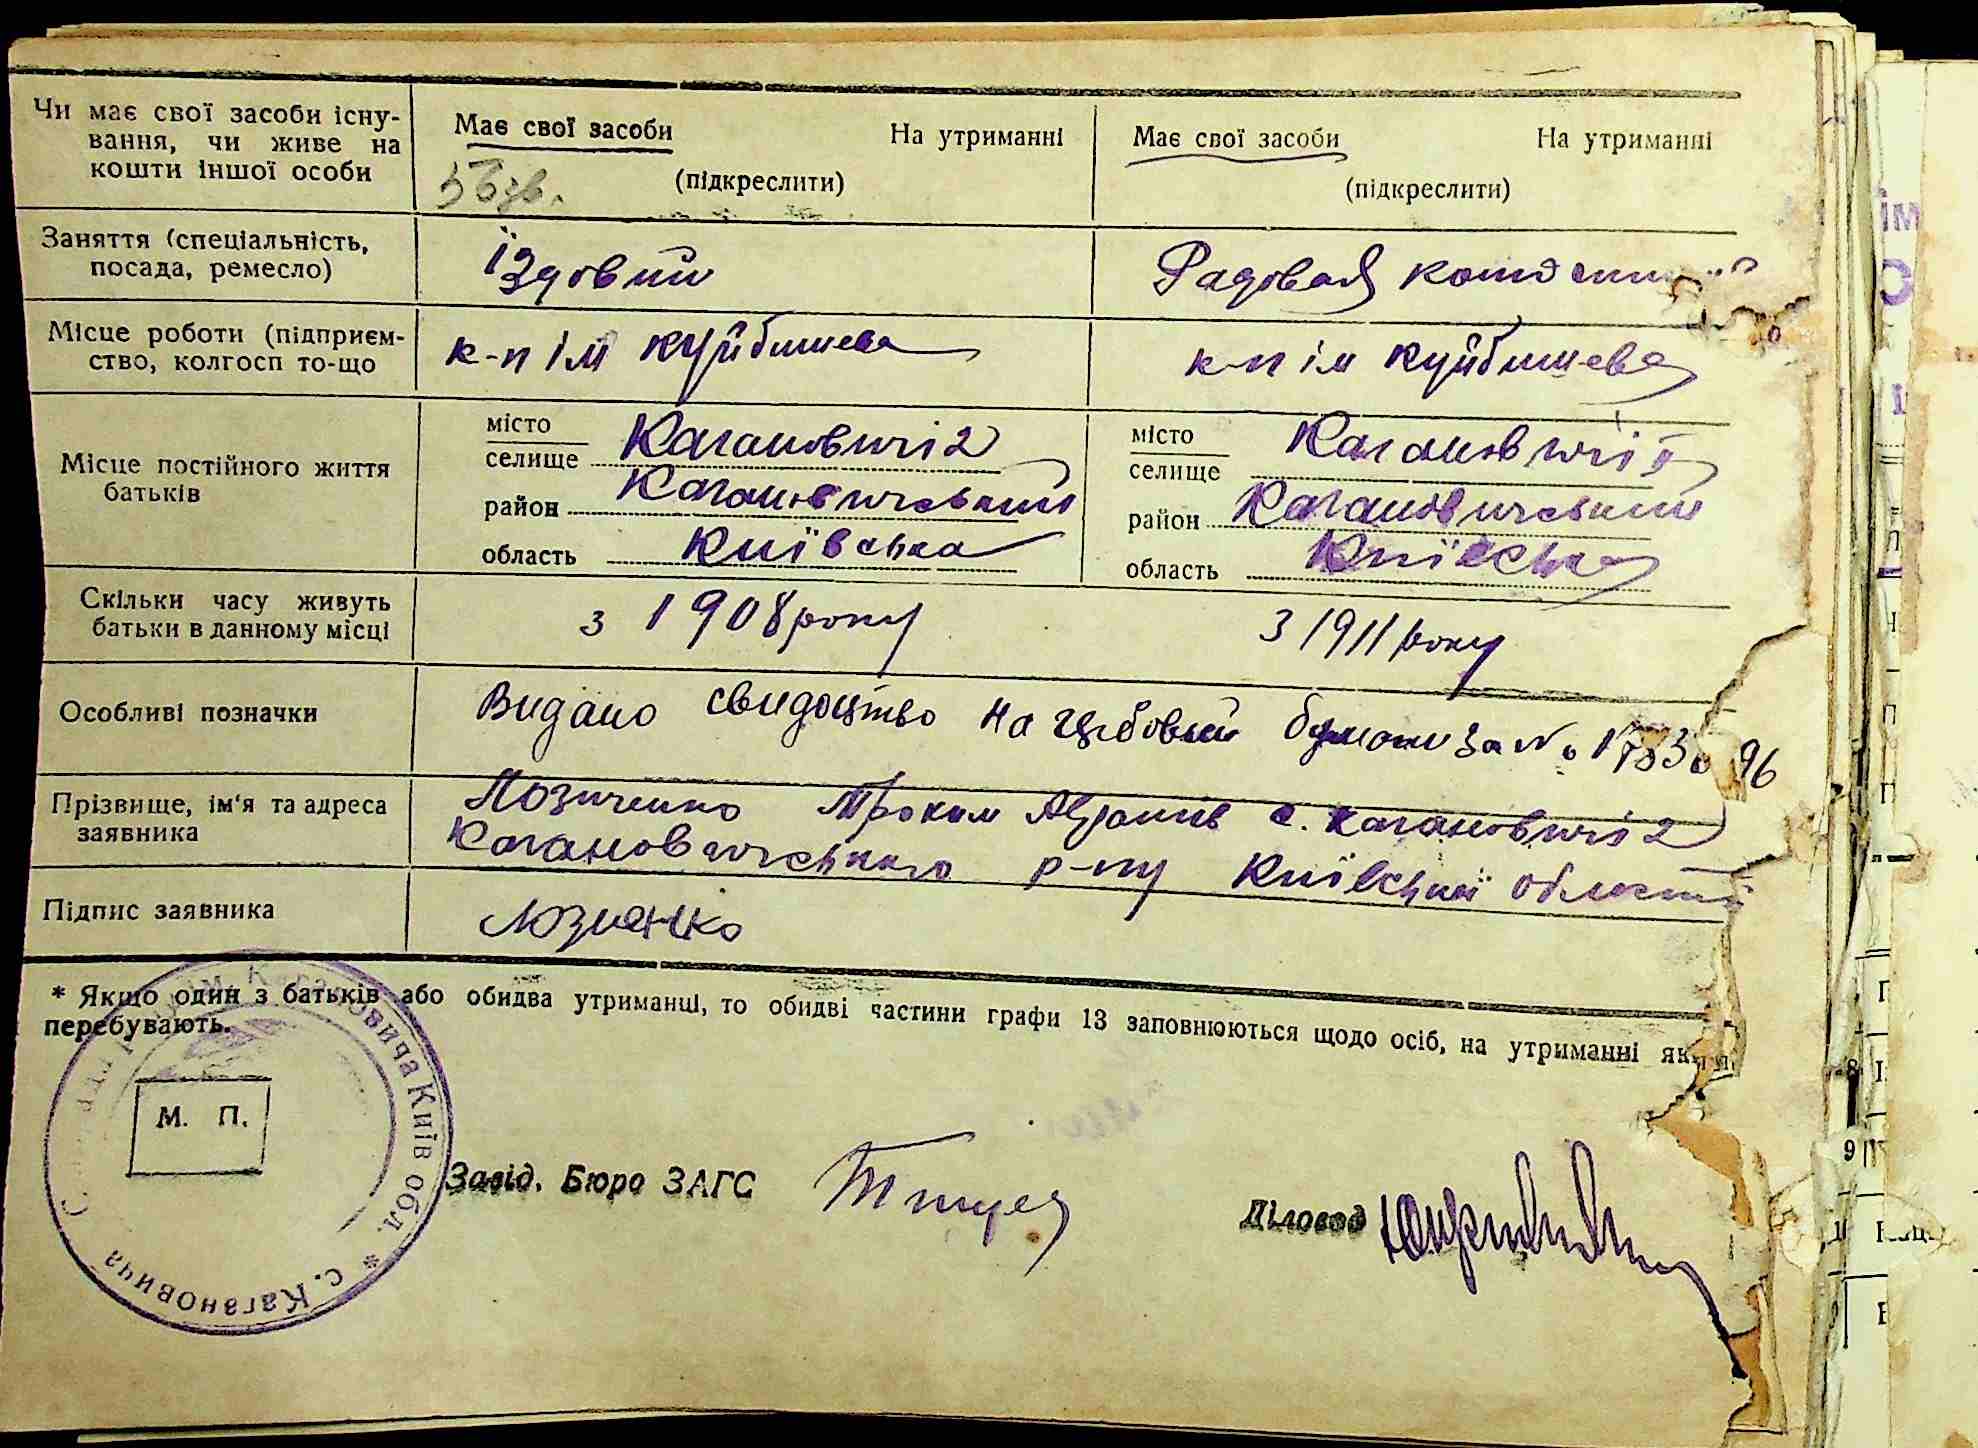 Чи має свої засоби існу-
вання, чи живе на
кошти іншої особи
Має свої засоби На утриманні
(підкреслити)
Має свої засоби На утриманні
(підкреслити)
Заняття (спеціальність,
посада, ремесло)
Їздовий
Радовая
Місце роботи (підприєм-
ство, колгосп то-що
к-п ім Куйбишева
к-п ім Куйбишева
Місце постійного життя
батьків
місто
селище Кагановичі 2
район Кагановичський
область Київська
місто
селище Кагановичі
район Кагановичський
область Київська
Скільки часу живуть
батьки в данному місці
з 1908 року
з 1911 року
Особливі позначки
Видано свидоцтво на
Прізвище, ім'я та адреса
заявника
Лозиченко Трохим с. Кагановичі 2
Кагановичського р-ну Київської області
Підпис заявника
* Якщо один з батьків або обидва утриманці, то обидві частини графи 13 заповнюються щодо осіб, на утриманні яких
перебувають.
М. П.
Кагановича Київ обл. * с. Кагановича
Завід. Бюро ЗАГС
Діловод